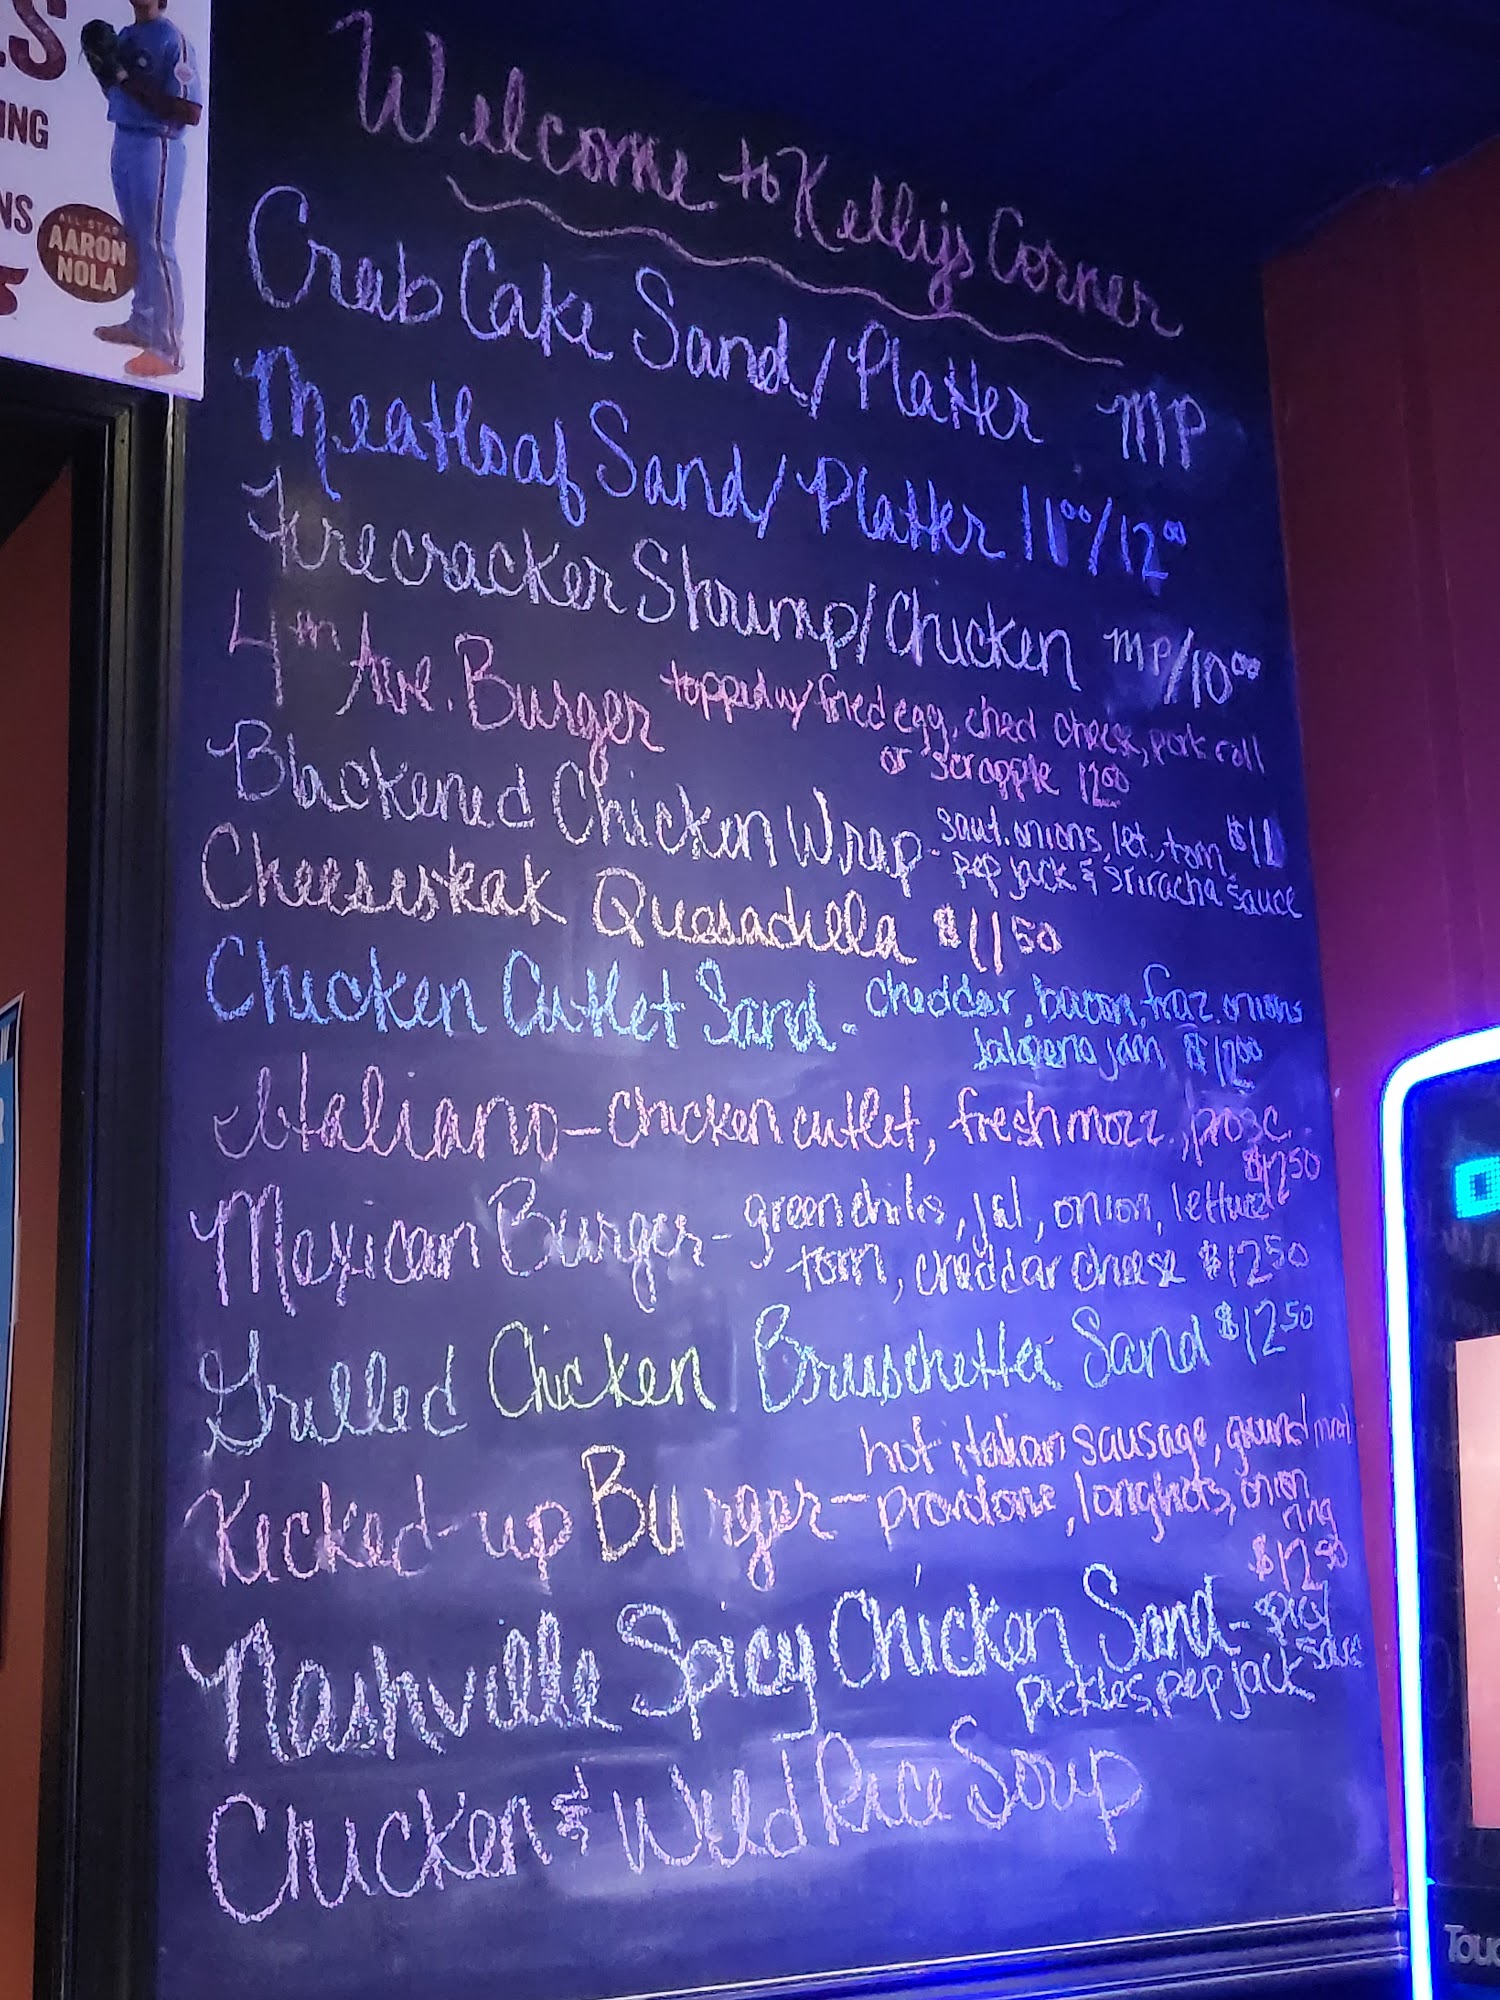 ING
NS
ALL-STAR
AARON
NOLA
Welcome to Kelly's Corner
Crab Cake Sand/Platter MP
Meatloaf Sand/Platter 11⁰⁰/12⁰⁰
Firecracker Shrimp/Chicken MP/10⁰⁰
4th Ave. Burger topped w/ fried egg, ched cheese, pork roll
or scrapple 12⁰⁰
Blackened Chicken Wrap - saut. onions, let., tom
pep jack & sriracha sauce
Cheesesteak Quesadilla $11⁵⁰
Chicken Cutlet Sand - cheddar, bacon, friz. onions
Jalapeno jam $12⁰⁰
Italiano - chicken cutlet, fresh mozz., prosc.
$12⁵⁰
Mexican Burger - green chilis, jal, onion, lettuce
tom, cheddar cheese $12⁵⁰
Grilled Chicken Bruschetta Sand $12⁵⁰
hot italian sausage, ground meat
Kicked-up Burger - provolone, longhots, onion
ring
$12⁵⁰
Nashville Spicy Chicken Sand - spicy
sauce
pickles, pep jack
Chicken & Wild Rice Soup